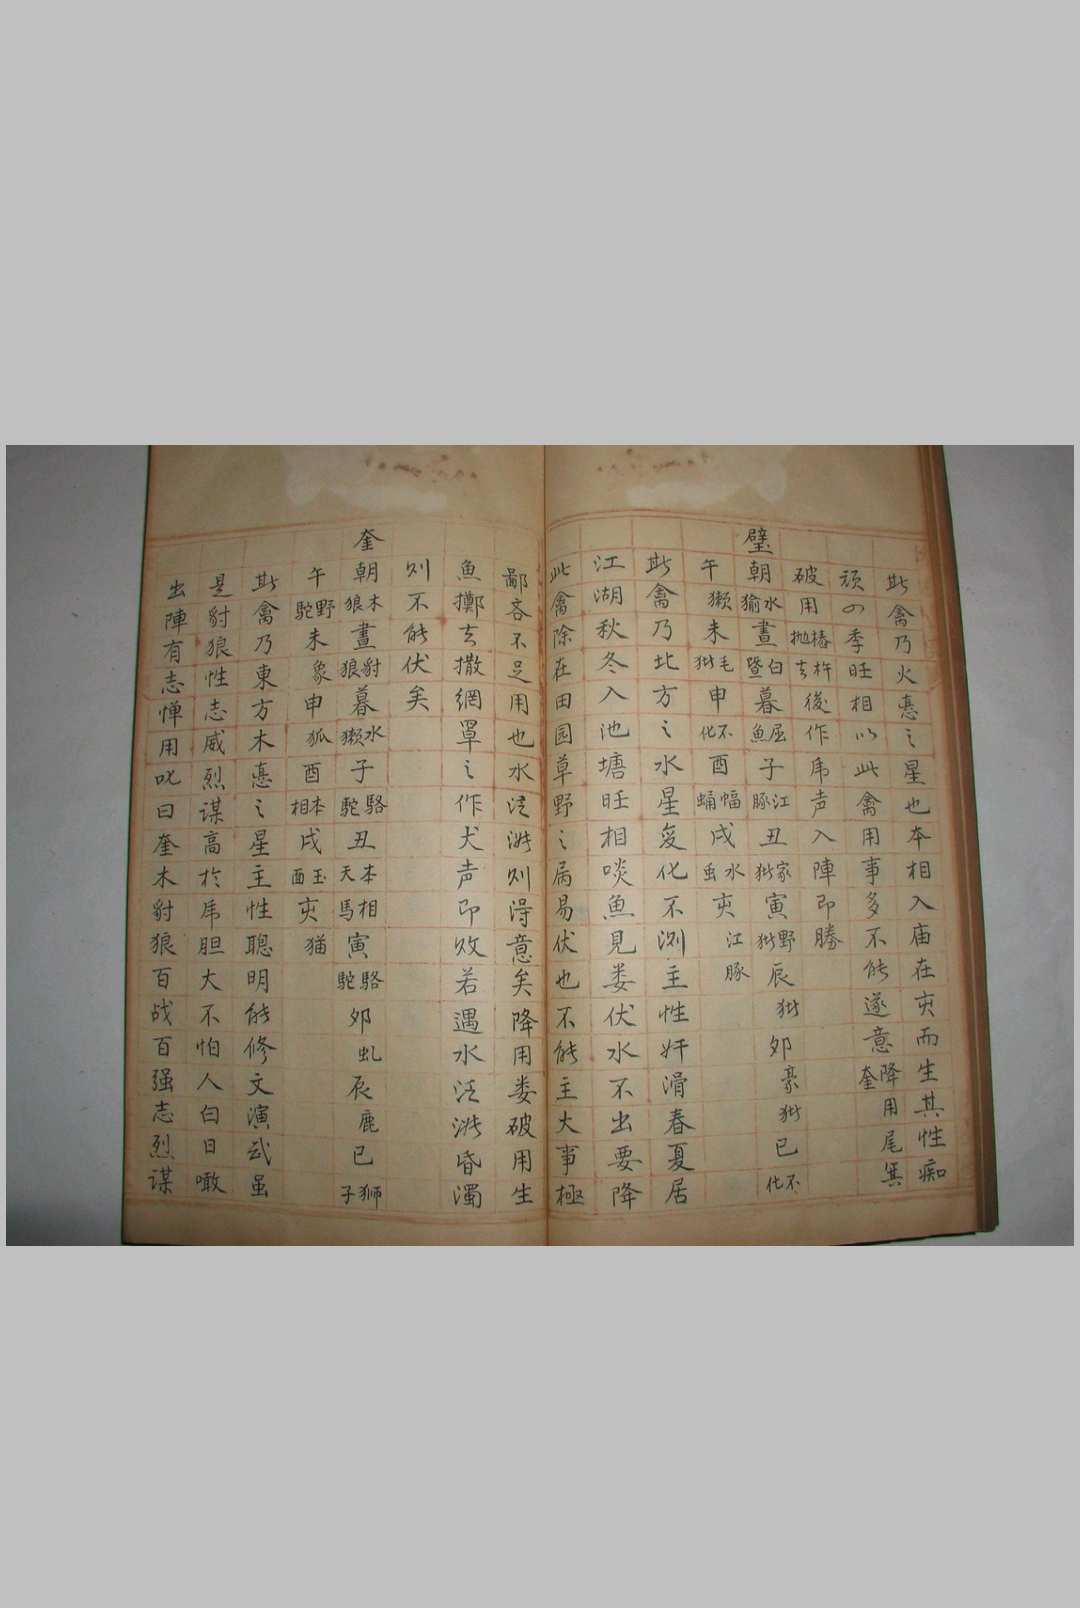 此禽乃火悳之星也本相入庙在亥而生其性痴
顽四季旺相以此禽用事多不能遂意降奎用尾箕
破用椿杵抛去後作虎声入陣即勝
壁朝水㺄晝白暨暮屈魚子江豚丑家㹠寅野㹠辰㹠卯豪㹠巳不化
午獭未毛㹠申不化酉蝠蝻戌水虫亥江豚
此禽乃北方之水星变化不测主性奸滑春夏居
江湖秋冬入池塘旺相啖魚見娄伏水不出要降
此禽除在田园草野之局易伏也不能主大事極
鄙吝不足用也水泛涨则得意矣降用娄破用生
魚擲去撒網罩之作犬声即败若遇水泛涨昏濁
则不能伏矣
奎朝木狼晝豺狼暮水獭子駱駝丑本相天馬寅駱駝卯虬辰鹿巳狮子
午野駝未象申狐酉本相戌玉面亥猫
此禽乃東方木悳之星主性聰明能修文演武虽
是豺狼性志威烈谋高於虎胆大不怕人白日瞰
出陣有志惮用叱曰奎木豺狼百战百强志烈谋